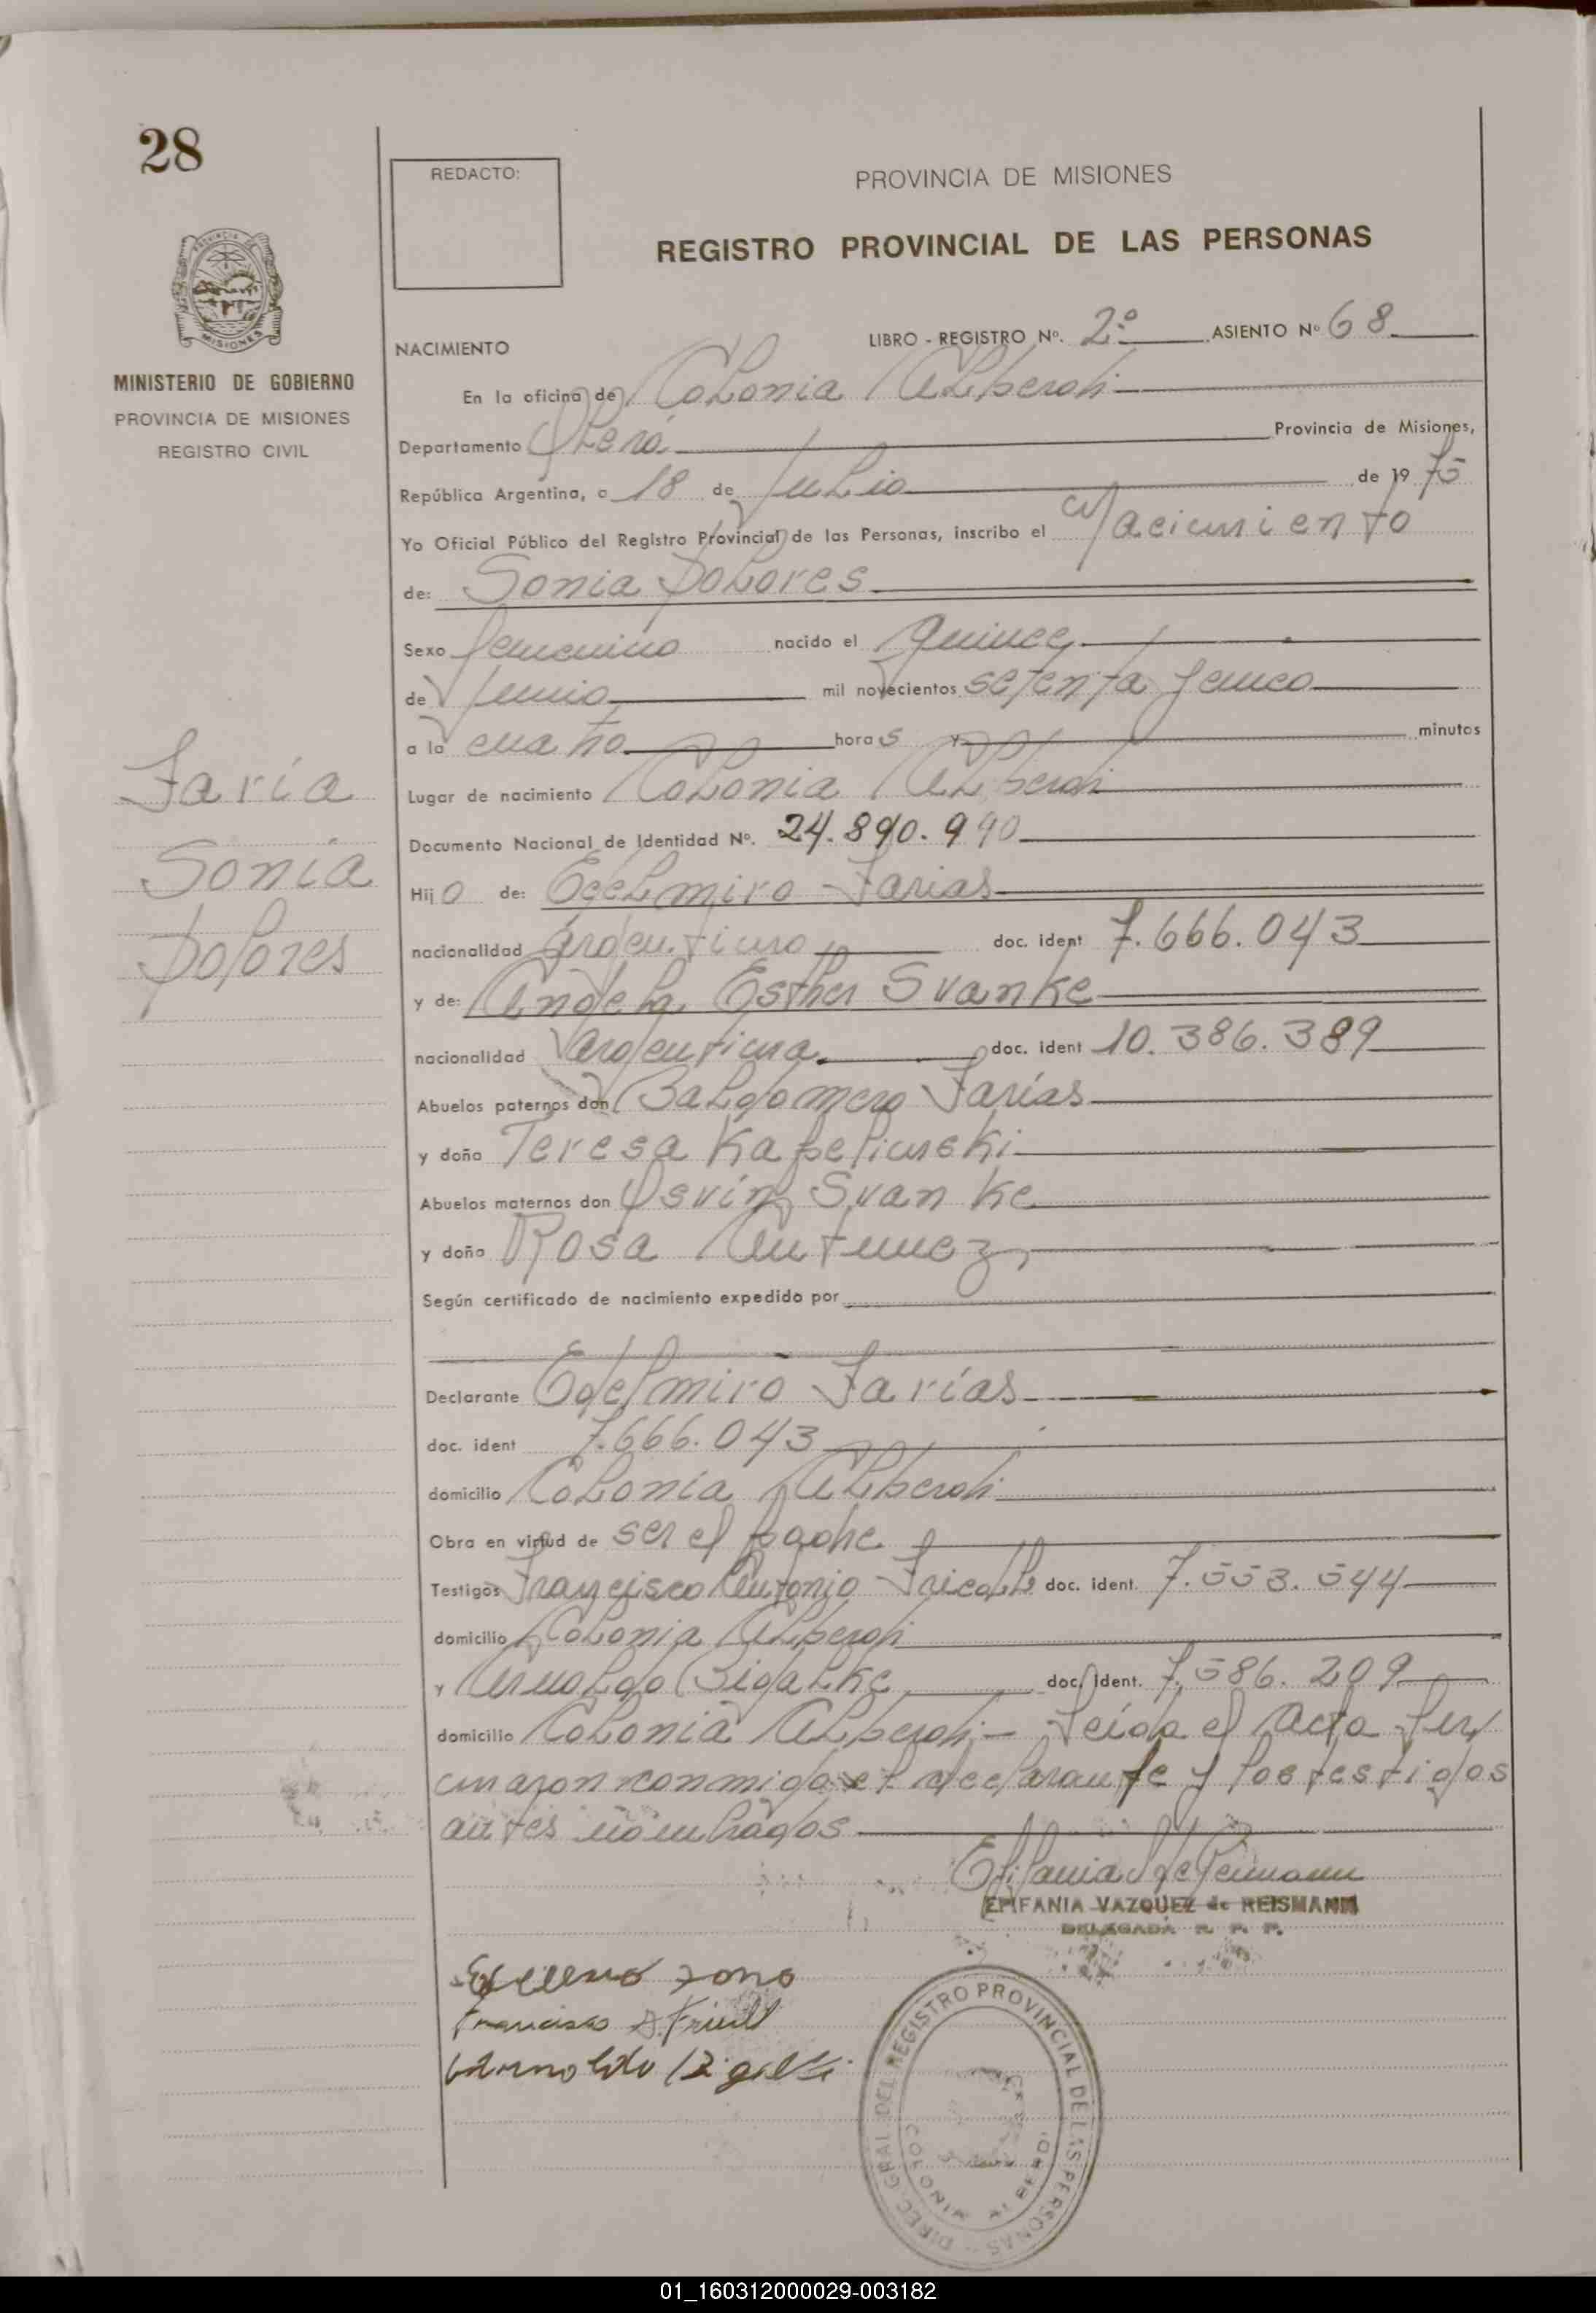 28
REDACTO:
PROVINCIA DE MISIONES
REGISTRO PROVINCIAL DE LAS PERSONAS
PROVINCIA DE MISIONES
MINISTERIO DE GOBIERNO
PROVINCIA DE MISIONES
REGISTRO CIVIL
LIBRO - REGISTRO Nº. 2º ASIENTO Nº 68
NACIMIENTO
En la oficina de Colonia Alberdi
Departamento Oberá Provincia de Misiones,
República Argentina, a 18 de Julio de 1975
Yo Oficial Público del Registro Provincial de las Personas, inscribo el Nacimiento
de: Sonia Dolores
Sexo femenino nacido el quince
de Junio mil novecientos setenta y cinco
a la cuatro horas y minutos
Faría
Sonia
Dolores
Lugar de nacimiento Colonia Alberdi
Documento Nacional de Identidad Nº. 24.890.990
Hijo de: Edelmiro Farias
nacionalidad argentino doc. ident 7.666.043
y de: Angela Esther Svanke
nacionalidad argentina doc. ident 10.386.389
Abuelos paternos don Baldomero Farías
y doña Teresa Kabelinski
Abuelos maternos don Osvin Svanke
y doña Rosa Antunez
Según certificado de nacimiento expedido por
Declarante Edelmiro Farías
doc. ident 7.666.043
domicilio Colonia Alberdi
Obra en virtud de ser el padre
Testigos Francisco Antonio doc. ident. 7.553.544
domicilio Colonia Alberdi
y Arnoldo Bigalke doc. ident. 7.586.209
domicilio Colonia Alberdi.- Leída el Acta fir
maron conmigo el declarante y los testigos
antes nombrados
EPIFANIA VAZQUEZ de REISMANN
DELEGADA R. P. P.
Francisco A.
Arnoldo Bigalke
DIREC. GRAL DEL REGISTRO PROVINCIAL DE LAS PERSONAS
COLONIA ALBERDI
01_160312000029-003182